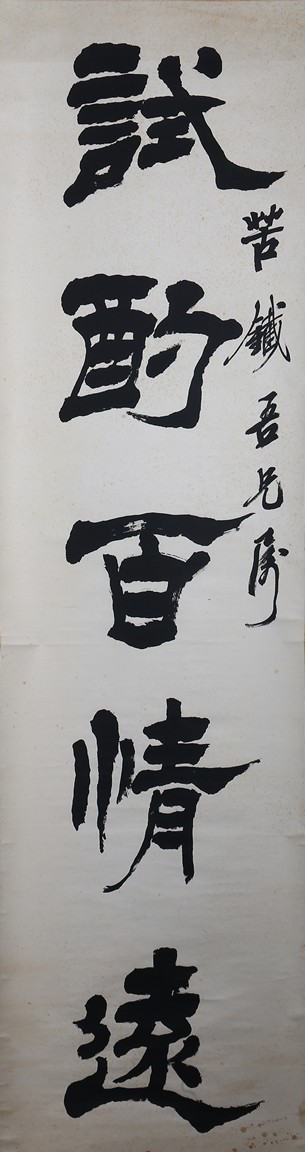 苦鐵吾兄屬
試酌百情遠